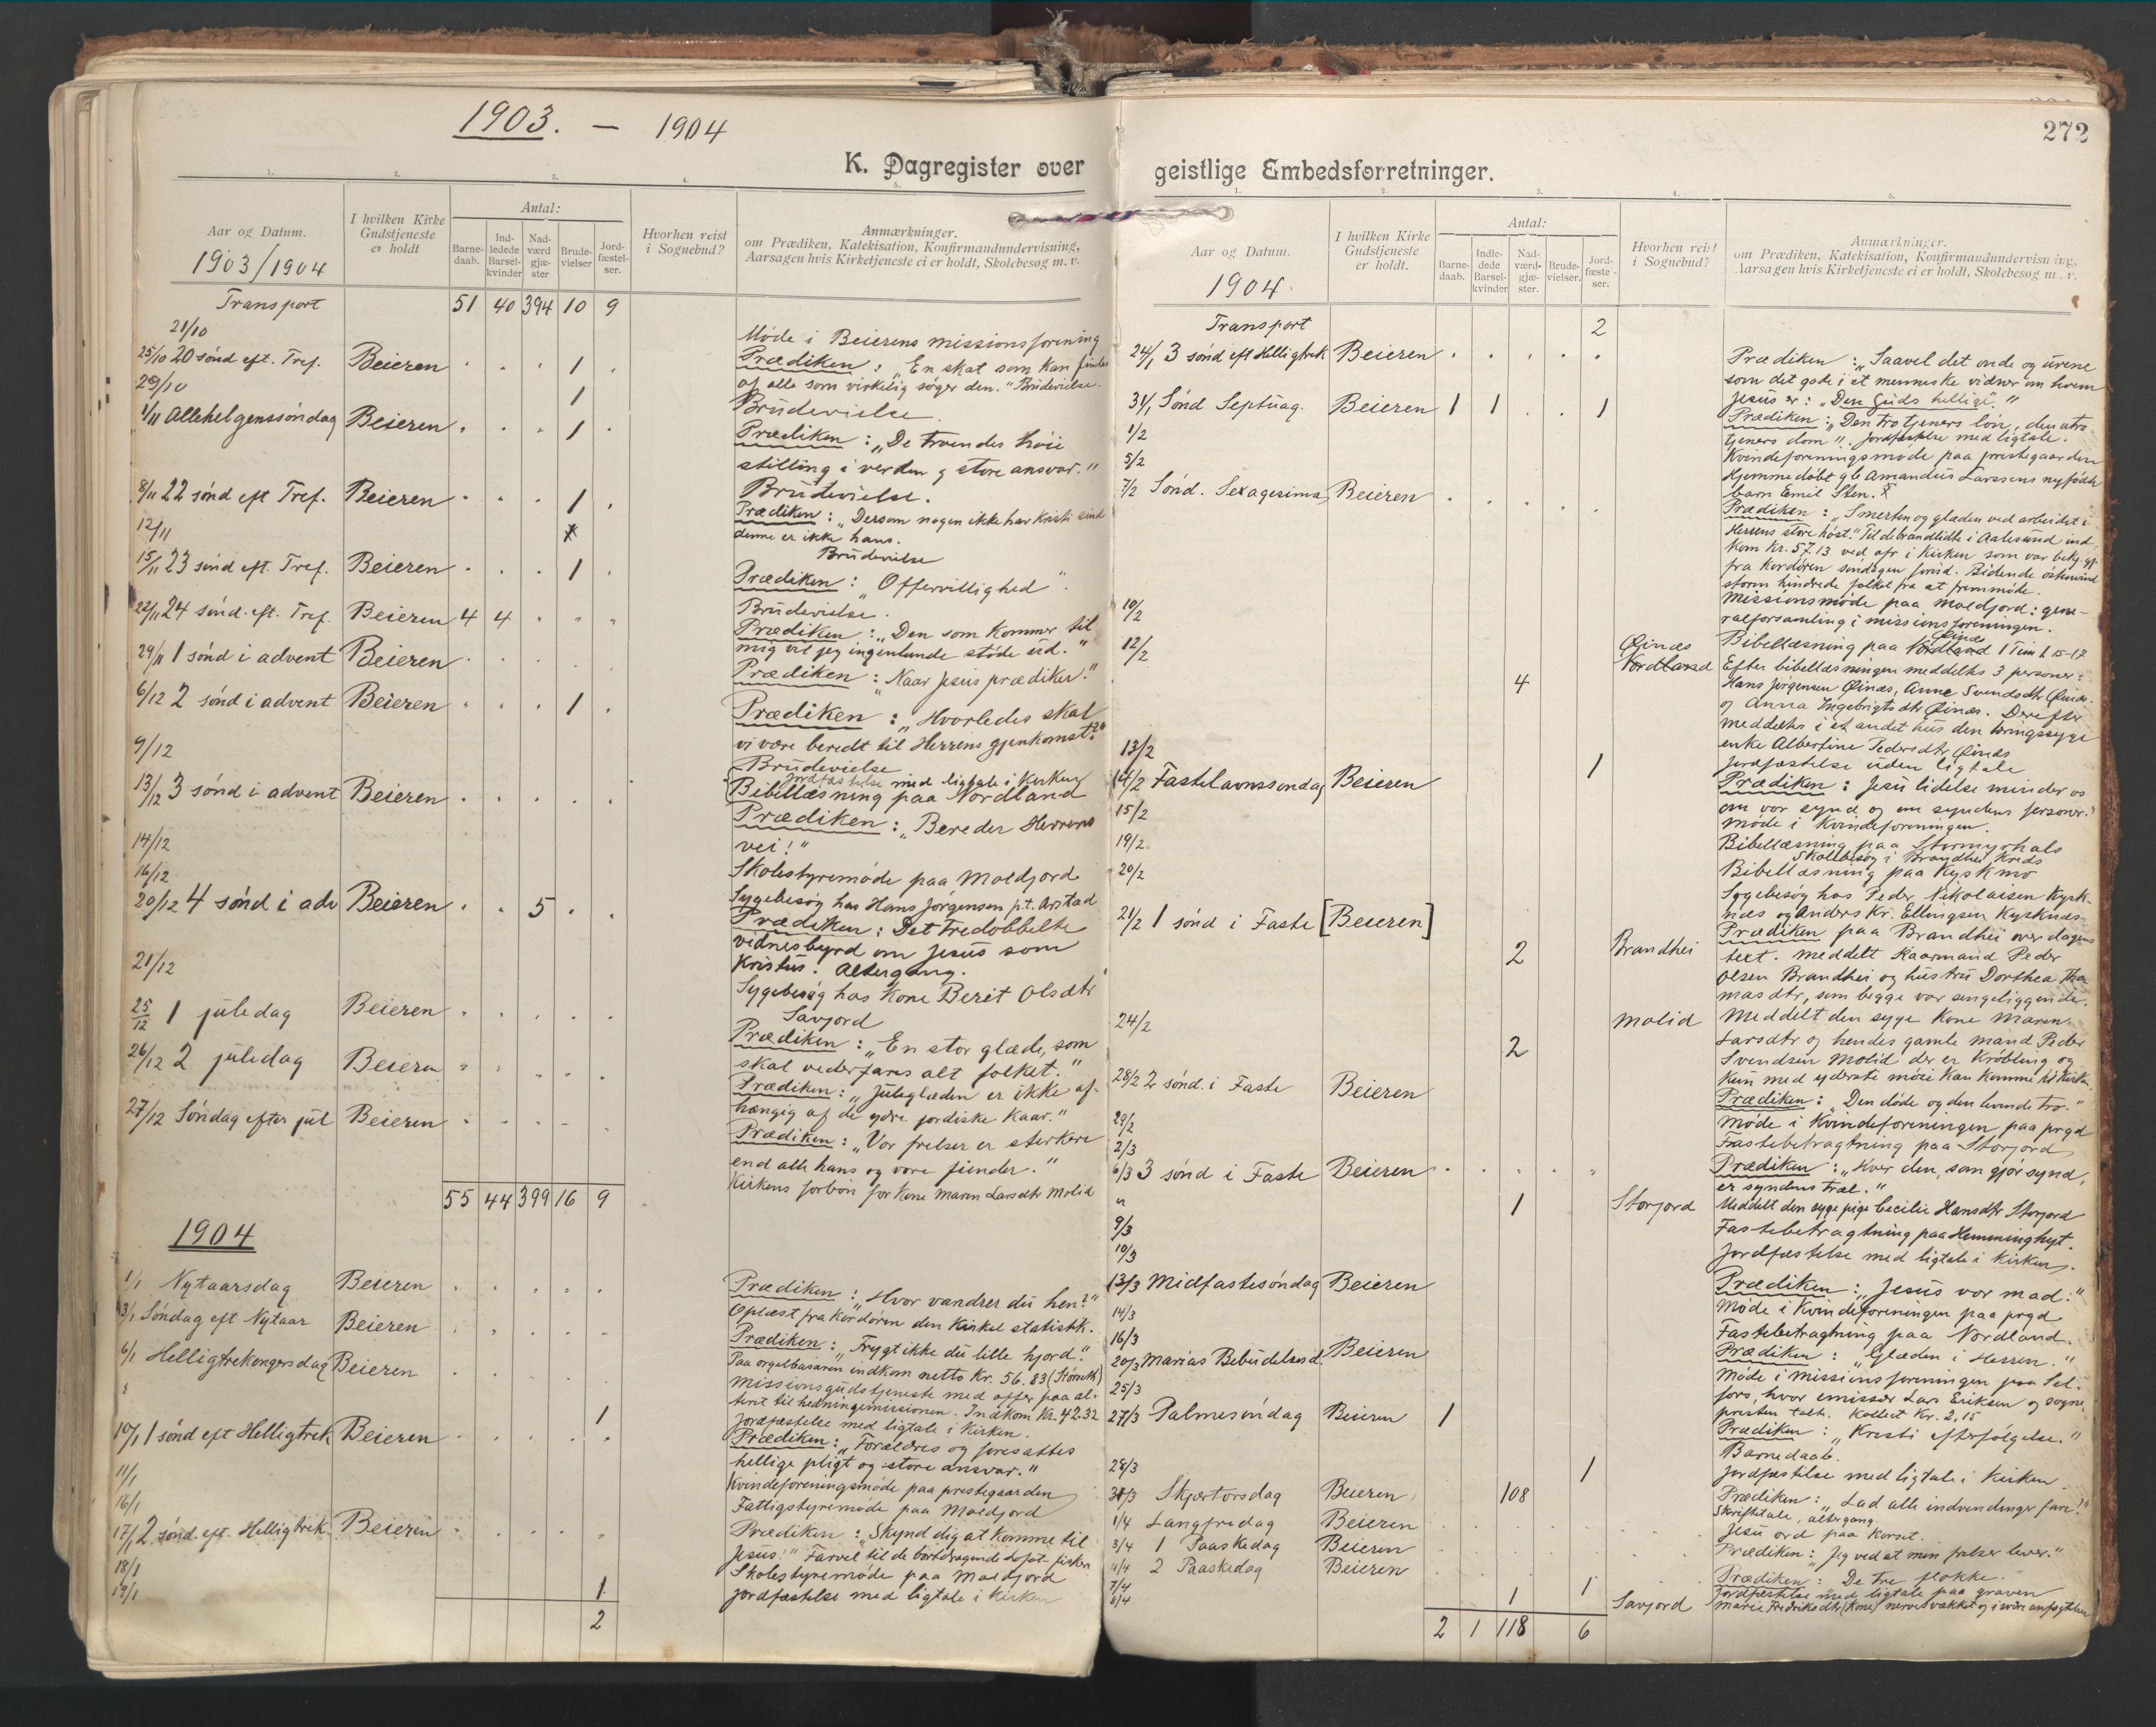 1903. — 1904
272
K. Dagregister over geistlige Embedsforretninger.
1. 2. 3. 4. 5.
Aar og Datum.
1903/1904
I hvilken Kirke Gudstjeneste er holdt
Antal:
Barnedaab. Indledede Barselkvinder Nadværdgjæster Brudevielser Jordfæstelser.
Hvorhen reist i Sognebud?
Anmærkninger.
om Prædiken, Katekisation, Konfirmandundervisning,
Aarsagen hvis Kirketjeneste ei er holdt, Skolebesøg m. v.
Transport 51 40 394 10 9
21/10 Møde i Beierens missionsforening
25/10 20 sønd eft. Tref. Beieren 1 Prædiken: „En skat som kan findes
af alle som virkelig søger den." Brudevielse.
29/10 1 Brudevielse.
1/11 Allehelgenssøndag Beieren 1 Prædiken: „De troendes høie
stilling i verden og store ansvar."
Brudevielse.
8/11 22 sønd eft Tref. Beieren 1 Prædiken: „Dersom nogen ikke har Kristi aand
denne er ikke hans.
12/11 Brudevielse
15/11 23 sønd eft. Tref. Beieren 1 Prædiken: „Offervillighed".
Brudevielse.
22/11 24 sønd. eft. Tref. Beieren 4 4 Prædiken: „Den som kommer til
mig vil jeg ingenlunde støde ud."
29/11 1 sønd i advent Beieren Prædiken: „Naar Jesus prædiker."
6/12 2 sønd i advent Beieren 1 Prædiken: „Hvorledes skal
vi være beredt til Herrens gjenkomst?"
Brudevielse
9/12 Jordfæstelse med ligtale i kirken
Bibellæsning paa Nordland
13/12 3 sønd i advent Beieren Prædiken: „Bereder Herrens
vei!"
14/12 Skolestyremøde paa Moldjord
16/12 Sygebesøg hos Hans Jørgensen p.t. Arstad
20/12 4 sønd i adv Beieren 5 Prædiken: Det tredobbelte
vidnesbyrd om Jesus som
Kristus. Altergang.
21/12 Sygebesøg hos Kone Berit Olsdtr
Savjord
25/12 1 juledag Beieren Prædiken: „En stor glæde, som
skal vederfares alt folket."
26/12 2 juledag Beieren Prædiken: „Juleglæden er ikke af-
hængig af de ydre jordiske kaar."
27/12 Søndag efter jul Beieren Prædiken: „Vor frelser er sterkere
end alle hans og vore fiender."
Kirkens forbøn for Kone Maren Larsdtr Molid
55 44 399 16 9
1904
1/1 Nytaarsdag Beieren Prædiken: „Hvor vandrer du hen?"
Oplæst fra kordøren den kirkel statistik.
3/1 Søndag eft Nytaar Beieren Prædiken: „Frygt ikke du lille hjord."
Paa orgelbasaren indkom netto Kr. 56.83
6/1 Helligtrekongersdag Beieren Missionsgudstjeneste med offer paa al-
teret til hedningemissionen. Indkom Kr. 42.32
1 Jordfæstelse med ligtale i kirken.
10/1 1 sønd eft Helligtrek Beieren Prædiken: „Forældres og foresattes
hellige pligt og store ansvar."
11/1 Kvindeforeningsmøde paa prestegaarden
16/1 Fattigstyremøde paa Moldjord
17/1 2 sønd. eft. Helligtrek. Beieren Prædiken: „Skynd dig at komme til
Jesus!" Farvel til de bortdragende Lofot-fiskere
18/1 Skolestyremøde paa Moldjord
19/1 1 Jordfæstelse med ligtale i kirken
2
1. 2. 3. 4. 5.
Aar og Datum.
1904.
I hvilken Kirke Gudstjeneste er holdt.
Antal:
Barnedaab. Indledede Barselkvinder Nadværdgjæster. Brudevielser. Jordfæstelser.
Hvorhen reist i Sognebud?
Anmærkninger.
om Prædiken, Katekisation, Konfirmandundervisning,
Aarsagen hvis Kirketjeneste ei er holdt, Skolebesøg m. v.
Transport 2
24/1 3 sønd eft Helligtrek Beieren Prædiken: „Saavel det onde og urene
som det gode i et menneske vidner om hvem
Jesus er: „Den Guds hellige"."
31/1 Sønd Septuag. Beieren 1 1 1 Prædiken: „Den tro tjeners løn, den utro
tjeners dom". Jordfæstelse med ligtale.
1/2 Kvindeforeningsmøde paa prestegaarden
5/2 Hjemmedøbt Amandus Larssens nyfødte
barn Emil Sten.
7/2 Sønd. Sexagesima Beieren Prædiken: „Smerten og glæden ved arbeidet i
Herrens store høst." Til de brandlidte i Aalesund ind-
kom Kr. 57.13 ved ofr i kirken som var bekj. gj.
fra kordøren søndagen forud. Bidende østenvind
storm hindrede folket fra at fremmøde.
10/2 Missionsmøde paa Moldjord: gene-
ralforsamling i missionsforeningen.
12/2 Øinæs Nordland Bibellæsning paa Nordland Øinæs 1 Tim 1 15-17
4 Efter bibellæsningen meddeltes 3 personer:
Hans Jørgensen Øinæs, Anne Svendsdtr Øinæs
og Anna Ingebrigtsdtr Øinæs. Derefter
meddeltes i et andet hus den bringssyge
enke Albertine Pedersdtr Øinæs
13/2 1 Jordfæstelse uden ligtale
14/2 Fastelavnssøndag Beieren Prædiken: Jesu lidelse minder os
om vor synd og om syndens forsoner."
15/2 Møde i Kvindeforeningen.
19/2 Bibellæsning paa Stormyrhals
Skolebesøg i Brandhei Kreds
20/2 Bibellæsning paa Kyskmo
Sygebesøg hos Peder Nikolaisen Kysk-
næs og Anders Kr. Ellingsen Kysknæs
21/2 1 sønd i Faste [Beieren] Prædiken paa Brandhei over dagens
2 Brandhei text. Meddelt Kaarmand Peder
Olsen Brandhei og hustru Dorthea Tho
masdtr, som begge var sengeliggende.
24/2 2 Molid Meddelt den syge Kone Maren
Larsdtr og hendes gamle mand Peder
Svendsen Molid der er krøbling og
kun med yderste møie kan komme til kirken.
28/2 2 sønd. i Faste Beieren Prædiken: „Den døde og den levende tro."
29/2 Møde i Kvindeforeningen paa prgd
2/3 Fastebetragtning paa Storjord
6/3 3 sønd i Faste Beieren Prædiken: „Hver den, som gjør synd,
er syndens træl."
" 1 Storjord Meddelt den syge pige Cecilie Hansdtr Storjord
9/3 Fastebetragtning paa Hemminghyt.
10/3 Jordfæstelse med ligtale i kirken.
13/3 Midfastesøndag Beieren Prædiken: „Jesus vor mad."
14/3 Møde i Kvindeforeningen paa prgd
16/3 Fastebetragtning paa Nordland.
20/3 Marias Bebudelsesd. Beieren Prædiken: „Glæden i Herren."
25/3 Møde i missionsforeningen paa Sel-
fors, hvor emissær Lars Eriksen og sogne
presten talte. Kollect Kr. 2.15
27/3 Palmesøndag Beieren 1 Prædiken: „Kristi efterfølgelse."
Barnedaab.
28/3 1 Jordfæstelse med ligtale i kirken.
31/3 Skjærtorsdag Beieren 108 Prædiken: „Lad alle indvendinger fare!"
Skriftetale, altergang.
1/4 Langfredag Beieren Jesu ord paa korset.
3/4 1 Paaskedag Beieren Prædiken: „Jeg ved at min frelser lever."
4/4 2 Paaskedag Beieren Prædiken: De tre flokke."
7/4 1 Jordfæstelse med ligtale paa graven
8/4 1 Savjord Marie Fredriksdtr (Kone) nervesvækket og i svære anfægtelser
2 1 118 6